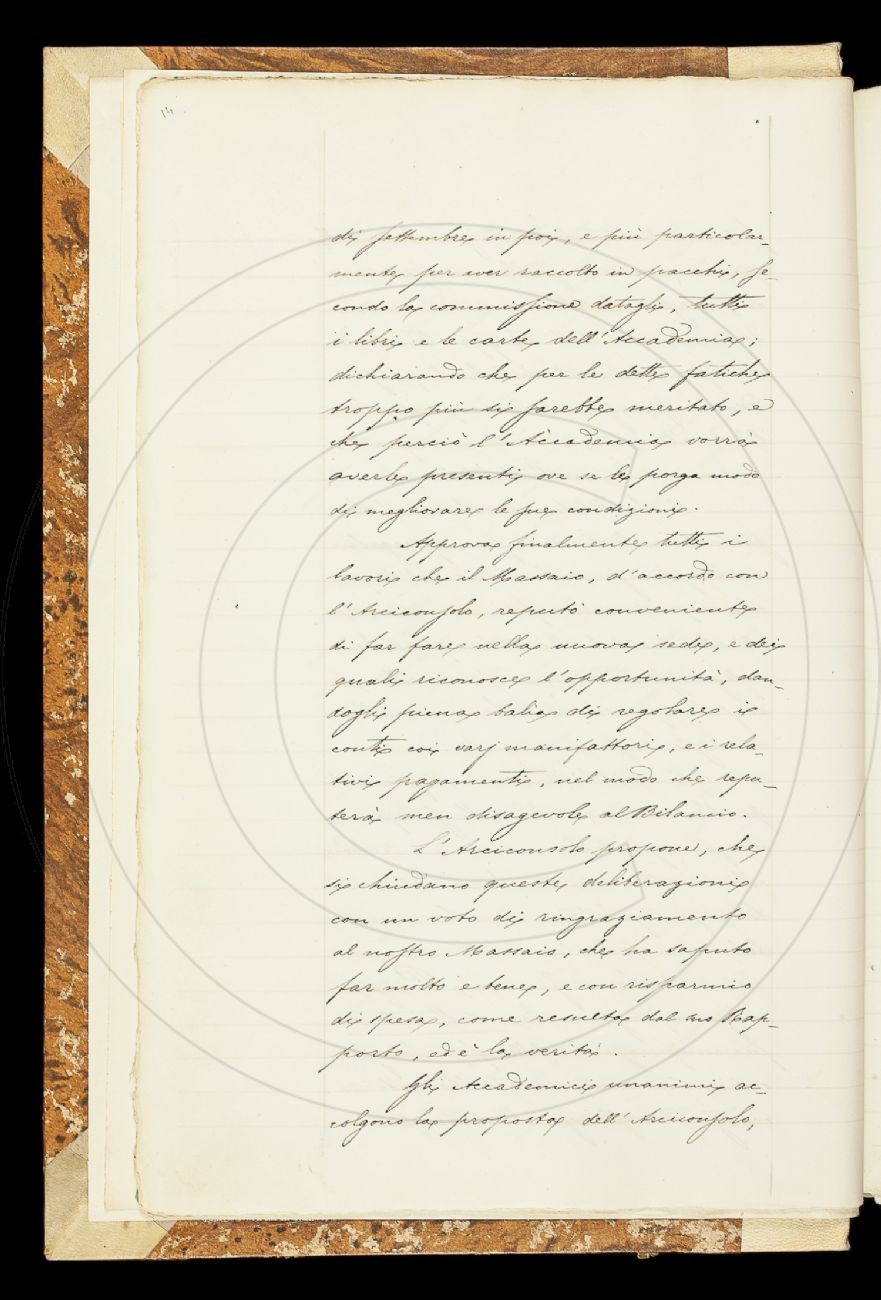 14
di settembre in poi, e più particolar-
mente per aver raccolto in pacchi, se-
condo la commissione datagli, tutti
i libri e le carte dell'Accademia;
dichiarando che per le dette fatiche
troppo più si sarebbe meritato, e
che perciò l'Accademia vorrà
averle presenti ove se le porga modo
di megliorare le sue condizioni.
Approva finalmente tutti i
lavori che il Massaio, d'accordo con
l'Arciconsolo, reputò conveniente
di far fare nella nuova sede, e dei
quali riconosce l'opportunità, dan-
dogli piena balìa di regolare i
conti coi varj manifattori, e i rela-
tivi pagamenti, nel modo che repu-
terà men disagevole al Bilancio.
L'Arciconsolo propone, che
si chiudano queste deliberazioni
con un voto di ringraziamento
al nostro Massaio, che ha saputo
far molto e bene, e con risparmio
di spesa, come resulta dal suo Rap-
porto, ed è la verità.
Gli Accademici unanimi ac-
colgono la proposta dell'Arciconsolo,